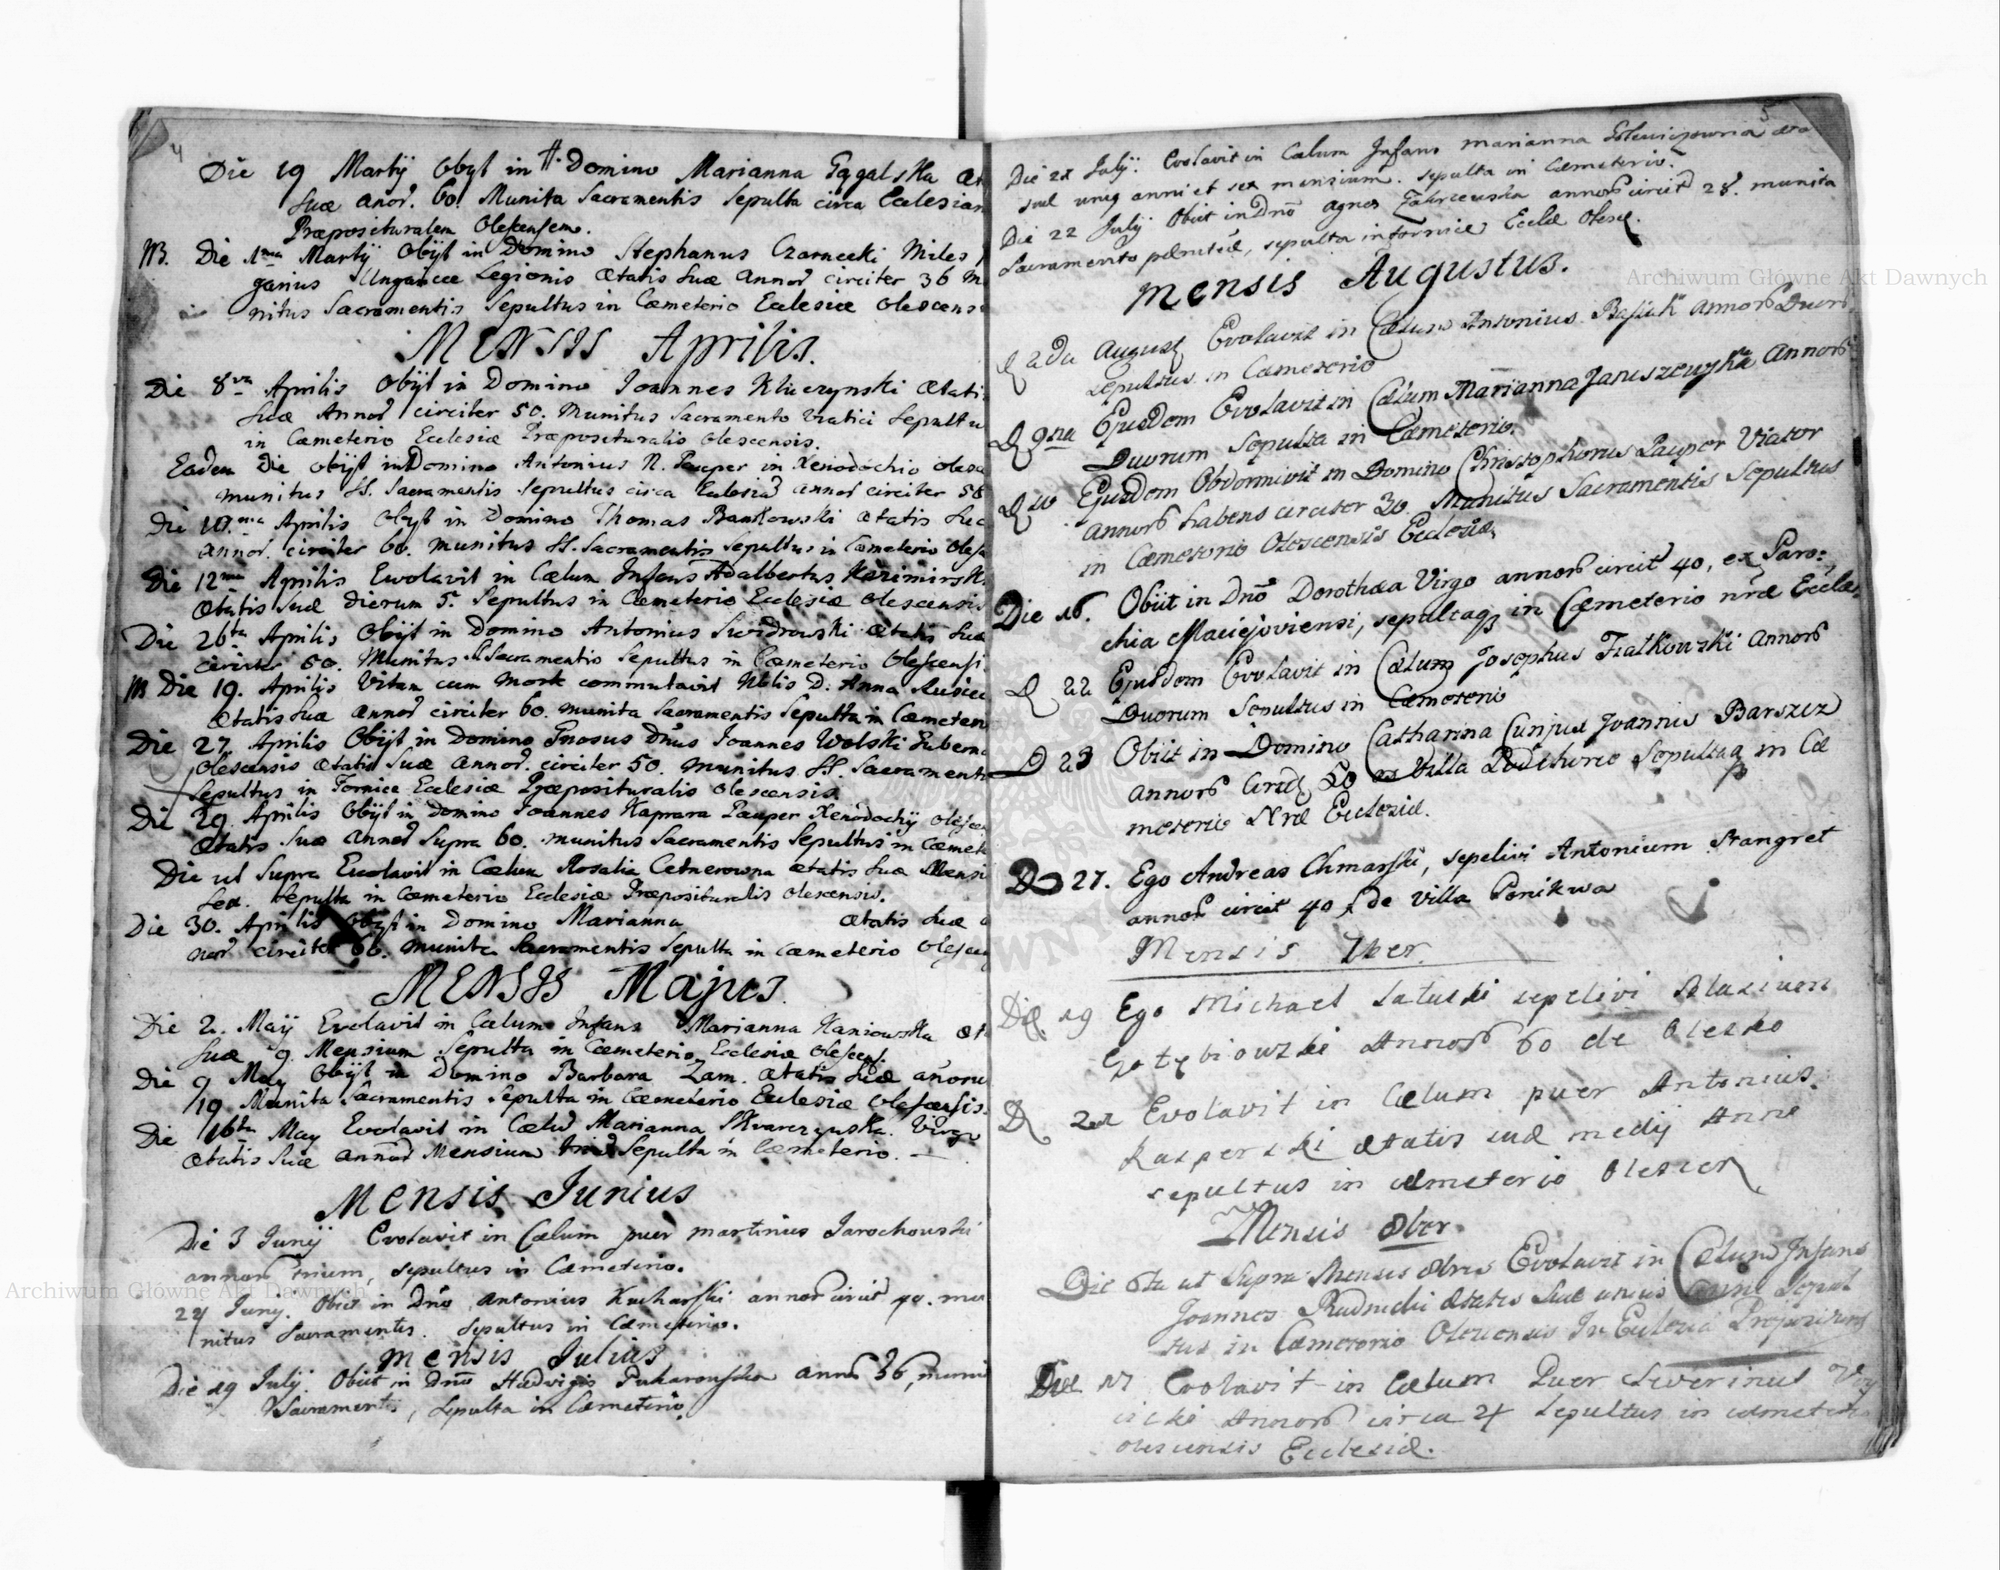 4
Die 19 Martij Obijt in Domino Marianna Gągalska æt
suæ anor. 60. Munita Sacramentis Sepulta circa Eclesiam
Præposituralem Olescensem.
NB. Die 1ma Martij Obijt in Domino Stephanus Czarnecki Miles
Ungaricæ Legionis Ætatis suæ Annor circiter 36 M
nitus Sacramentis Sepultus in Cæmeterio Eclesiæ Olescens
MENSIS Aprilis.
Die 8va Aprilis Obijt in Domino Joannes Kluczynski Ætati
suæ Annor circiter 50. Munitus Sacramento Viatici Sepultu
in Cæmeterio Eclesiæ Præposituralis Olescensis.
Eadem Die obijt in Domino Antonius N. Pauper in Xenodochio Olesce
munitus SS. Sacramentis Sepultus circa Eclesia annor circiter 58
Die 10ma Aprilis Obijt in Domino Thomas Bankowski Ætatis suæ
annor. circiter 60. munitus SS. Sacramentis Sepultus in Cæmeterio Olesc
Die 12ma Aprilis Evolavit in Cælum Infans Adalbertus Kazimirsk
Ætatis suæ Dierum 5. Sepultus in Cæmeterio Eclesiæ Olescensis
Die 26ta Aprilis Obijt in Domino Antonius Swidrowski Ætatis suæ
circiter 60. Munitus SS Sacramentis Sepultus in Cæmeterio Olescensi
NB Die 19. Aprilis Vitam cum Morte commutavit Nblis D. Anna
Ætatis suæ annor circiter 60. munita Sacramentis Sepulta in Cæmeteri
Die 27. Aprilis Obijt in Domino Gnosus Dnus Joannes Wolski Guberna
Olescensis Ætatis suæ annor. circiter 50. munitus SS. Sacramenti
Sepultus in Fornice Eclesiæ Præposituralis Olescensis
Die 29. Aprilis Obijt in Domino Joannes Kaprara Pauper Xenodochij Olesce
Ætatis suæ annor supra 60. munitus Sacramentis Sepultus in Cæmete
Die ut Supra Evolavit in Cælum Rosalia Cetnerowna ætatis suæ Mensi
sex. Sepulta in Cæmeterio Eclesiæ Præposituralis Olescensis.
Die 30. Aprilis Obijt in Domino Marianna Ætatis suæ a
nor circiter 60. munita Sacramentis Sepulta in Cæmeterio Olescen
MENSIS Majus.
Die 2. Maij Evolavit in Cælum Infans Marianna Kaniowska æt
suæ 9. Mensium Sepulta in Cæmeterio Eclesiæ Olescens.
Die 9 May Obijt in Domino Barbara Zam. Ætatis suæ añoru
19 Munita Sacramentis Sepulta in Cæmeterio Eclesiæ Olescensis.
Die 16ta May Evolavit in Cælu Marianna Skwarczynska Virgo
Ætatis suæ annor Mensium Sepulta in Cæmeterio.
Mensis Junius
Die 3 Junij Evolavit in Cælum puer Martinus Jarochowski
annor trium, sepultus in Cæmeterio.
24 Junij. Obiit in Dño Antonius Kucharski annor circit 40. mu
nitus Sacramentis. Sepultus in Cæmeterio.
Mensis Julius
Die 19 Julij. Obiit in Dño Hedvigis Puharowska annor 36, muni
Sacramentis, Sepulta in Cæmeterio.
5
Die 21 Julij. Evolavit in Cælum Infans Marianna æta
suæ unig anni et sex mensium. sepulta in Cæmeterio.
Die 22 Julij Obiit in Dño Agnes Zakrzewska annor circit 28. munita
Sacramento, sepulta in fornice Ecclæ Olesc.
Mensis Augustus.
D 2da Augusti Evolavit in Cælum Antonius Basiuk Annor Duor
sepultus in Cæmeterio
D 9na Ejusdem Evolavit in Cælum Marianna Januszewska Annor
Duorum Sepulta in Cæmeterio.
D 10 Ejusdem Obdormivit in Domino Christophorus Pauper Viator
Annor habens circiter 30. Munitus Sacramentis Sepultus
in Cæmeterio Olescensis Ecclesiæ
Die 16. Obiit in Dño Dorothæa Virgo annor circit 40, ex Paro:
chia Maciejoviensi, sepultaq; in Cæmeterio nræ Eccle:
D 22 Ejusdem Evolavit in Cælum Josephus Fiałkowski Annor
Duorum Sepultus in Cæmeterio
D 23 Obiit in Domino Catharina Conjus Joannis Barszcz
Annor Circit 50 ex Villa Podhorce Sepultaq in Cæ
meterio Nræ Ecclesiæ.
D 27. Ego Andreas Chmarski, sepelivi Antonium Stangret
annor circit 40 de Villa Ponikwa
Mensis 7ber.
Die 19 Ego Michael Satuski sepelivi Blasium
Gołębiowski Annor 60 de Olesko
D 21 Evolavit in Cælum puer Antonius
Kasperski ætatis suæ medij Anni
sepultus in cæmeterio Olescen
Mensis 8ber.
Die 6ta ut Supra Mensis 8bris Evolavit in Cælum Infans
Joannes Rudnicki Ætatis Suæ unius anni Sepul
tus in Cæmeterio Olescensis
Die 17 Evolavit in Cælum Puer Severinus
Annor circa 4 Sepultus in cæmeterio
Olescensis Ecclesiæ.
Archiwum Główne Akt Dawnych
Archiwum Główne Akt Dawnych